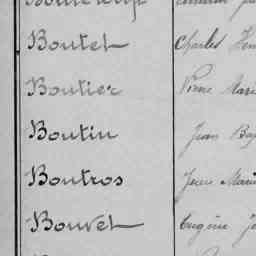 Boutet Charles
Boutier Pierre Marie
Boutin Jean
Boutros Jean Marie
Bouvet Eugène